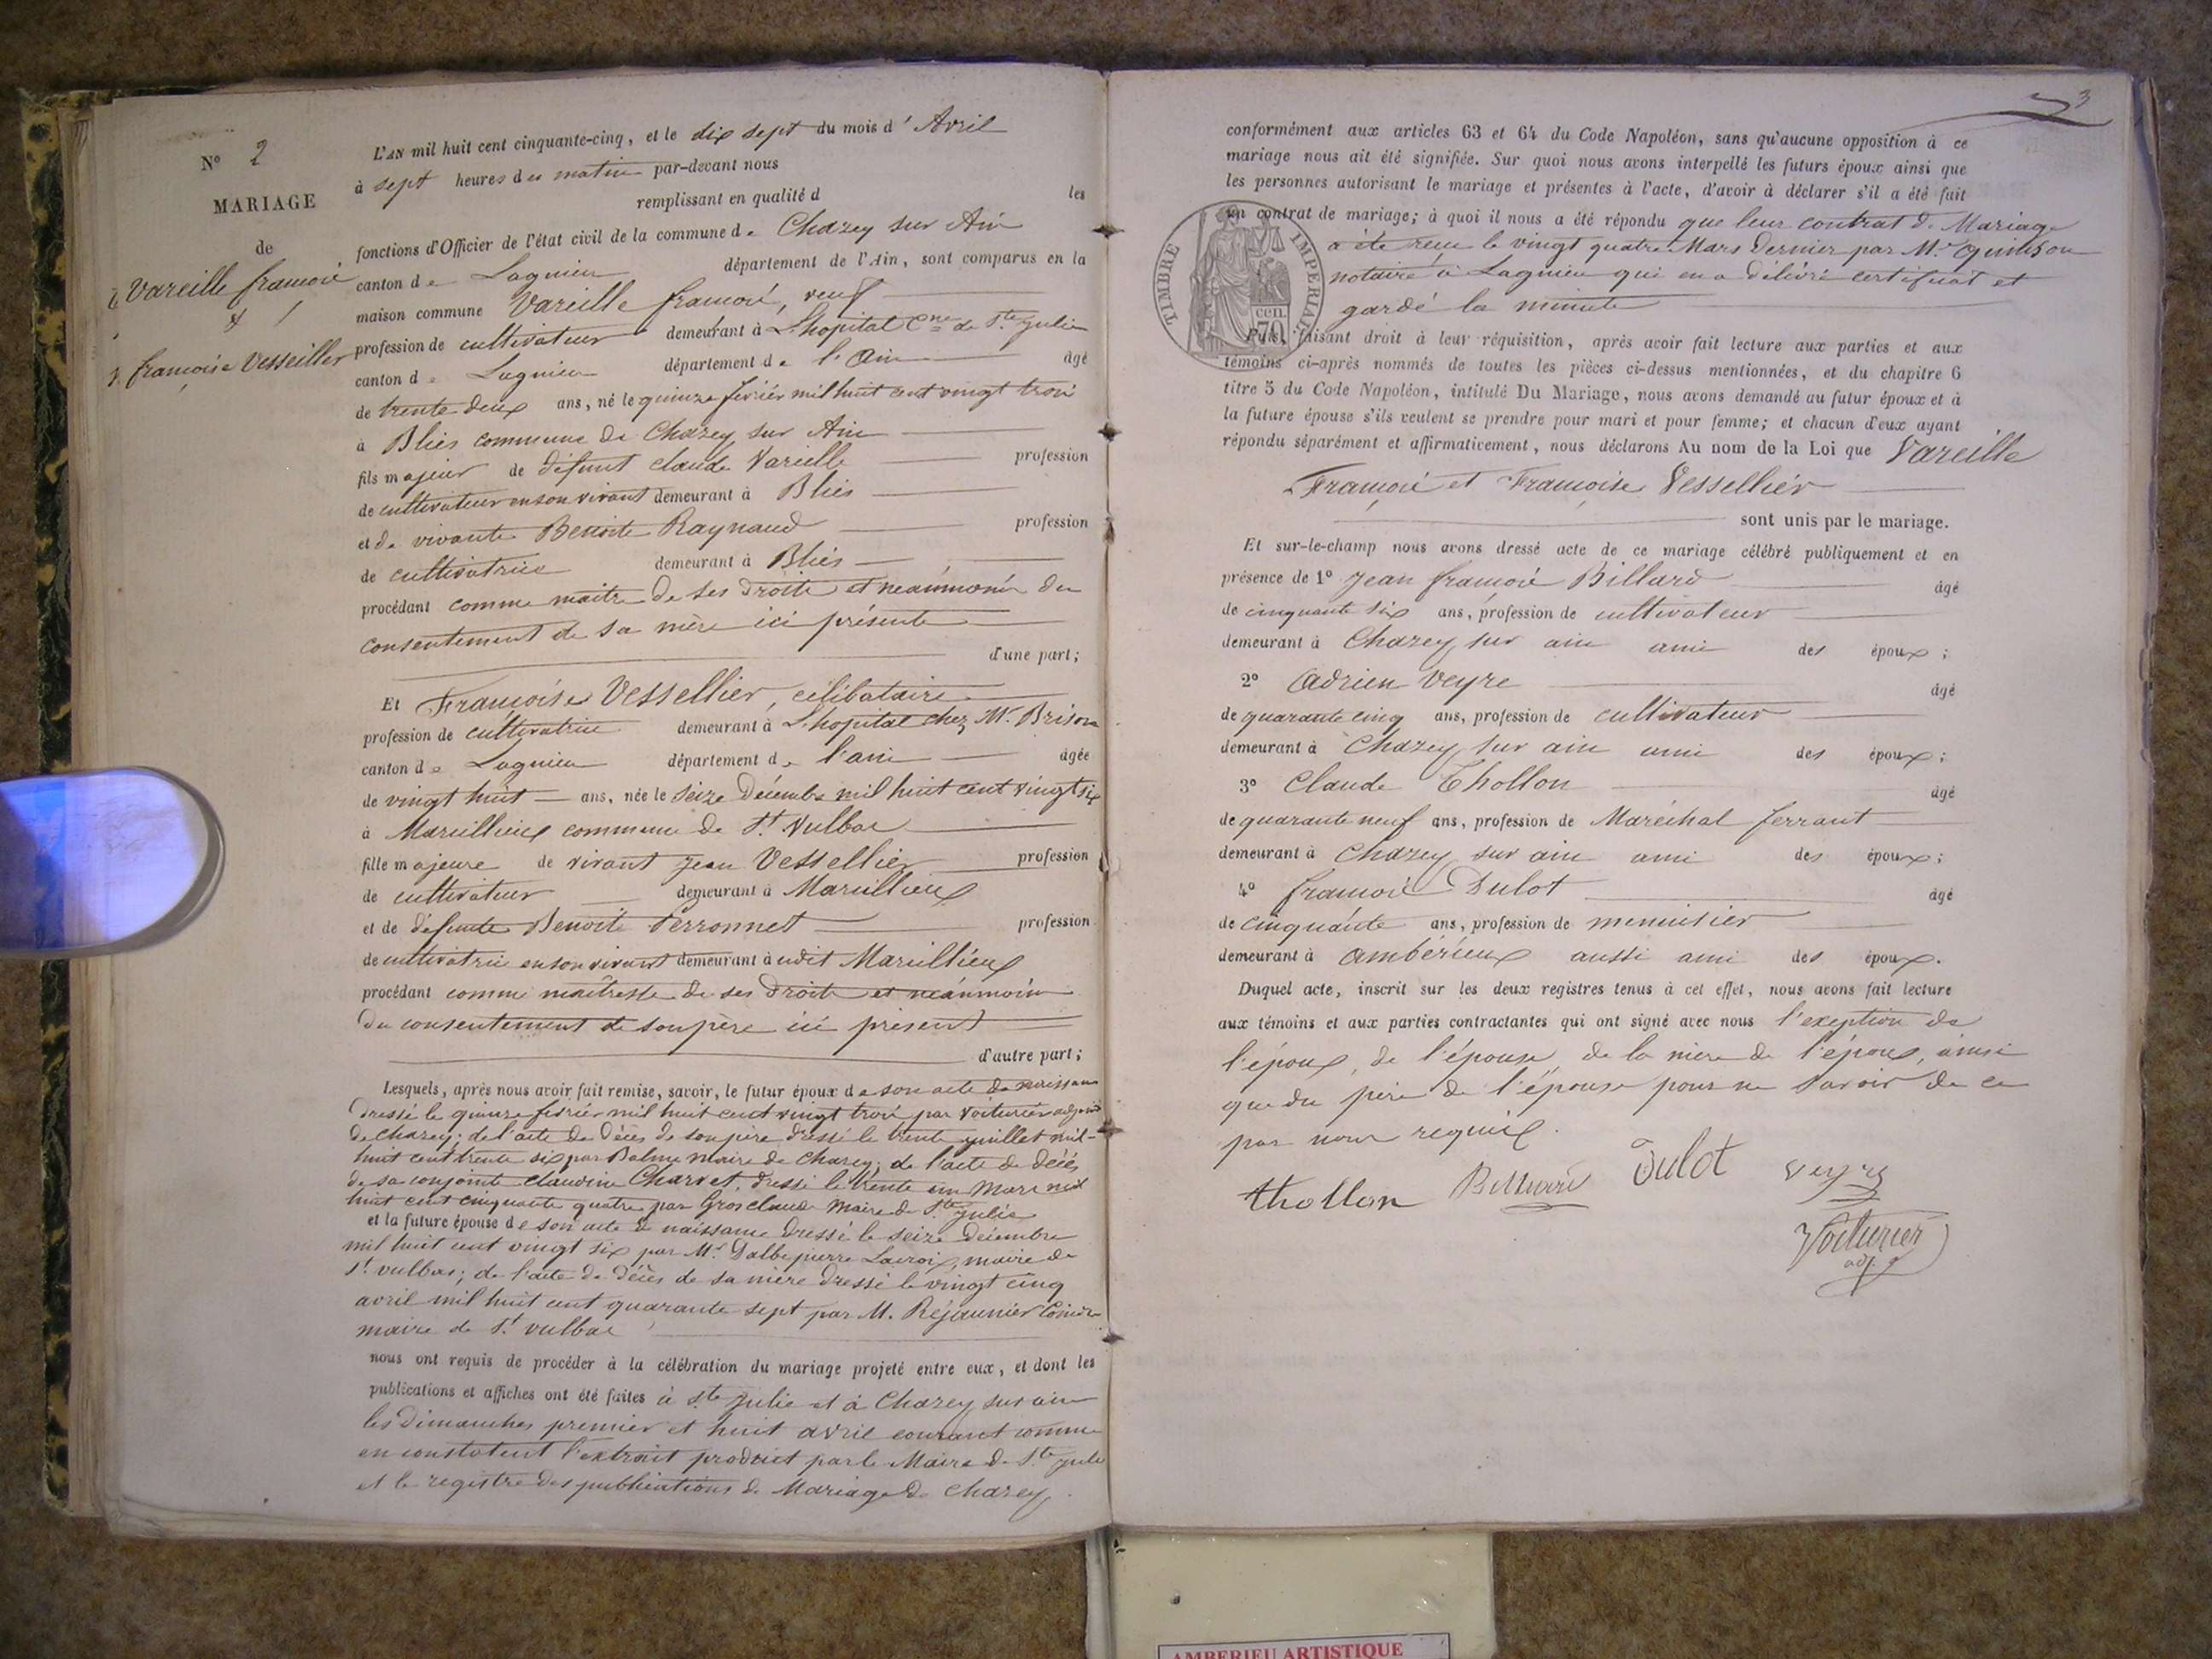 N° 2
MARIAGE
de
Vareille françois
&
françoise Vesseiller
L'AN mil huit cent cinquante-cinq, et le dix sept du mois d'Avril
à sept heures du matin par-devant nous
remplissant en qualité d les
fonctions d'Officier de l'état civil de la commune de Chazey sur Ain
canton de Lagnieu département de l'Ain, sont comparus en la
maison commune Vareille françois, veuf
profession de cultivateur demeurant à L'hopital Cne de Ste Julie
canton de Lagnieu département de l'Ain âgé
de trente deux ans, né le quinze février mil huit cent vingt trois
à Bliès commune de Chazey sur Ain
fils majeur de défunt claude Vareille profession
de cultivateur en son vivant demeurant à Bliès
et de vivante Benoite Raynaud profession
de cultivatrice demeurant à Bliès
procédant comme maitre de ses droits et neanmoins du
consentement de sa mère ici présente
d'une part;
Et Françoise Vessellier, célibataire
profession de cultivatrice demeurant à L'hopital chez Mr Brison
canton de Lagnieu département de l'ain âgée
de vingt huit ans, née le seize décembre mil huit cent vingt six
à Marcillieux commune de St Vulbas
fille majeure de vivant Jean Vessellier profession
de cultivateur demeurant à Marcillieux
et de défunte Benoite Perronnet profession
de cultivatrice en son vivant demeurant à udit Marcillieux
procédant comme maitresse de ses droits et néanmoins
du consentement de son père ici présent
d'autre part;
Lesquels, après nous avoir fait remise, savoir, le futur époux de son acte de naissance
dressé le quinze février mil huit cent vingt trois par Voiturier adjoint
de Chazey; de l'acte de décès de son père dressé le trente juillet mil-
huit cent trente six par Balme maire de Chazey; de l'acte de décès
de sa conjointe claudine Charvet, dressé le trente un Mars mil
huit cent cinquante quatre par Grosclaude Maire de Ste Julie
et la future épouse de son acte de naissance dressé le seize décembre
mil huit cent vingt six par Mr Dalbepierre Lacroix, maire de
St vulbas; de l'acte de décès de sa mère dressé le vingt cinq
avril mil huit cent quarante sept par M. Réjaunier
maire de St vulbas
nous ont requis de procéder à la célébration du mariage projeté entre eux, et dont les
publications et affiches ont été faites à Ste Julie et à Chazey sur ain
les dimanches premier et huit avril courant comme
en constatent l'extrait produit par le Maire de Ste Julie
et le registre des publications de Mariage de Chazey.
3
conformément aux articles 63 et 64 du Code Napoléon, sans qu'aucune opposition à ce
mariage nous ait été signifiée. Sur quoi nous avons interpellé les futurs époux ainsi que
les personnes autorisant le mariage et présentes à l'acte, d'avoir à déclarer s'il a été fait
un contrat de mariage; à quoi il nous a été répondu que leur contrat de Mariage
a été reçu le vingt quatre Mars dernier par Me Quinson
notaire à Lagnieu qui en a délivré certificat et
gardé la minute
TIMBRE IMPERIAL
70 cen.
Puis, faisant droit à leur réquisition, après avoir fait lecture aux parties et aux
témoins ci-après nommés de toutes les pièces ci-dessus mentionnées, et du chapitre 6
titre 5 du Code Napoléon, intitulé Du Mariage, nous avons demandé au futur époux et à
la future épouse s'ils veulent se prendre pour mari et pour femme; et chacun d'eux ayant
répondu séparément et affirmativement, nous déclarons Au nom de la Loi que Vareille
François et Françoise Vessellier
sont unis par le mariage.
Et sur-le-champ nous avons dressé acte de ce mariage célébré publiquement et en
présence de 1° Jean françois Billard âgé
de cinquante six ans, profession de cultivateur
demeurant à Chazey sur ain ami des époux;
2° Adrien Veyre âgé
de quarante cinq ans, profession de cultivateur
demeurant à Chazey sur ain ami des époux;
3° Claude Thollon âgé
de quarante neuf ans, profession de Maréchal ferrant
demeurant à Chazey sur ain ami des époux;
4° françois Dulot âgé
de cinquante ans, profession de menuisier
demeurant à ambérieux aussi ami des époux.
Duquel acte, inscrit sur les deux registres tenus à cet effet, nous avons fait lecture
aux témoins et aux parties contractantes qui ont signé avec nous l'exeption de
l'époux, de l'épouse, de la mère de l'époux, ainsi
que du père de l'épouse pour ne savoir de ce
par nous requis.
thollon Billard Dulot Veyre
Voiturier
adj.
AMBERIEU ARTISTIQUE